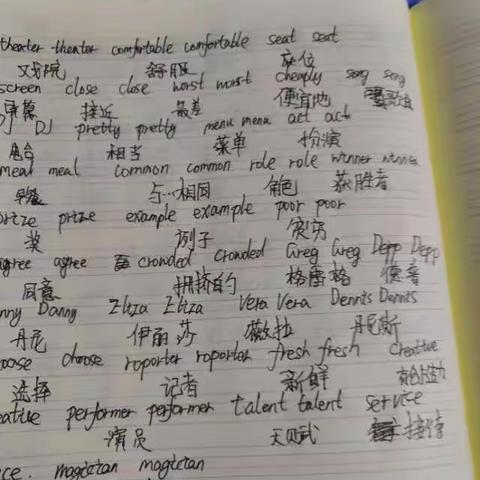 theater theater comfortable comfortable seat seat
戏院 舒服 座位
screen close close worst worst cheaply song song
屏幕 接近 最差 便宜地 歌曲
DJ DJ pretty pretty menu menu act act
相当 菜单 扮演
meal meal common common role role winner winner
与…相同 角色 获胜者
prize prize example example poor poor
奖 例子 贫穷
agree agree crowded crowded Greg Greg Depp Depp
同意 拥挤的 格雷格 德普
nny Danny Eliza Eliza Vera Vera Dennis Dennis
丹尼 伊丽莎 薇拉 丹尼斯
oose choose roporter roporter fresh fresh creative
选择 记者 新鲜 有创造力
eative performer performer talent talent service
演员 天赋 接待
ice. magician magician